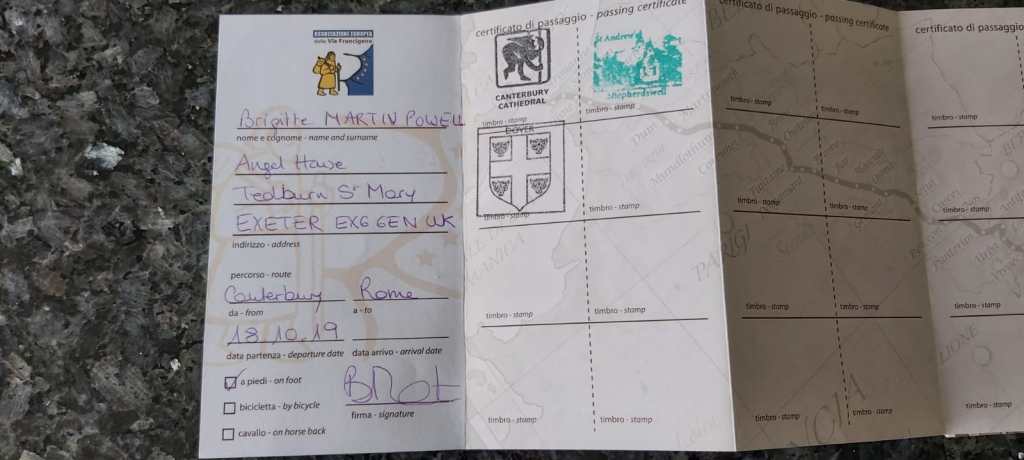 ASSOCIAZIONE EUROPEA
delle Vie Francigene
Brigitte MARTIN POWELL
nome e cognome - name and surname
Angel House
Tedburn St Mary
EXETER EX6 6EN UK
indirizzo - address
percorso - route
Canterbury Rome
da - from a - to
18.10.19
data partenza - departure date data arrivo - arrival date
a piedi - on foot
bicicletta - by bicycle
cavallo - on horse back
firma - signature
certificato di passaggio - passing certificate
CANTERBURY
CATHEDRAL
St Andrew's
Shepherdswell
timbro - stamp timbro - stamp
DOVER
timbro - stamp timbro - stamp
timbro - stamp timbro - stamp
timbro - stamp timbro - stamp
certificato di passaggio - passing certificate
timbro - stamp timbro - stamp
timbro - stamp timbro - stamp
timbro - stamp timbro - stamp
timbro - stamp timbro - stamp
PARIGI
certificato di passaggio
timbro - stamp
timbro - stamp
timbro - stamp
timbro - stamp
LIONE